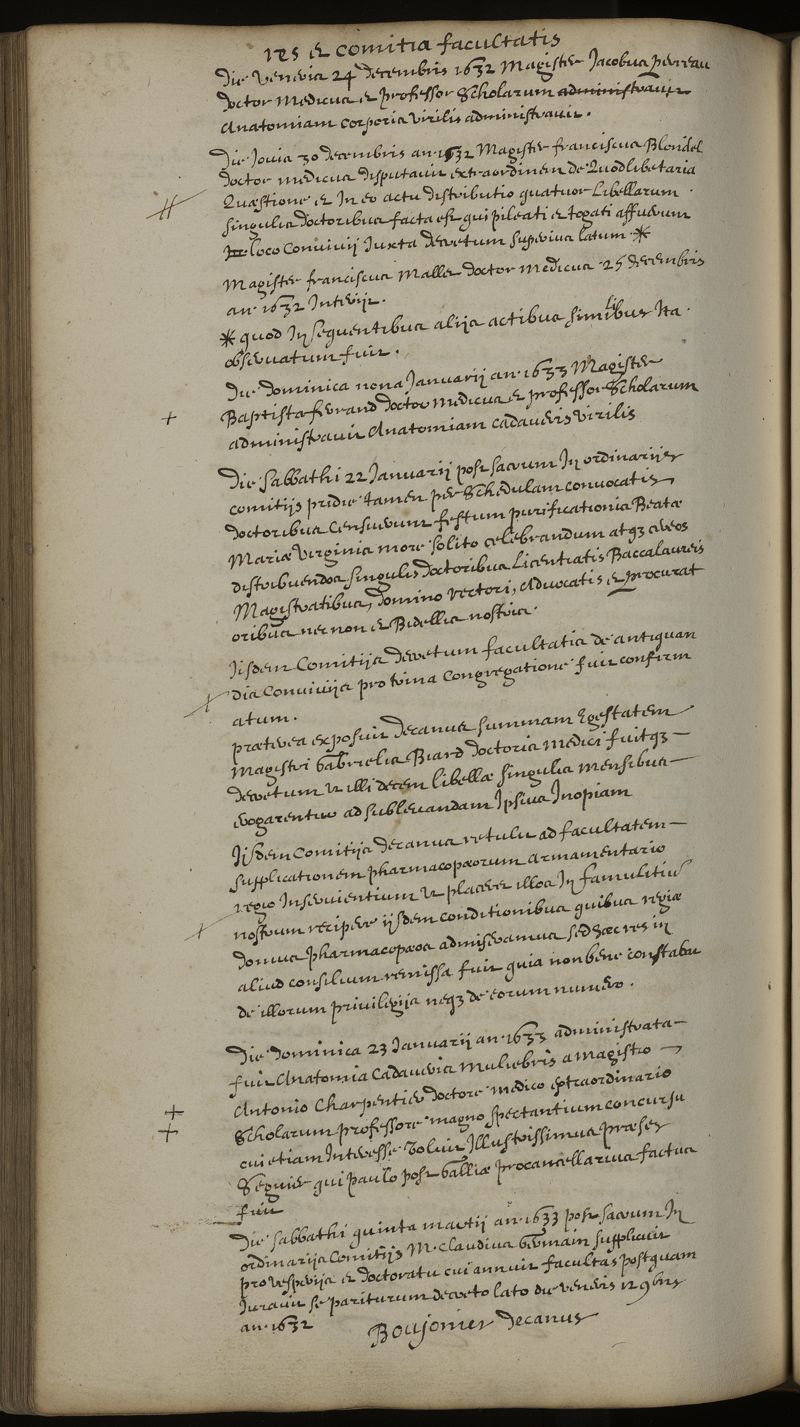 res et comitia facultatis
Die Veneris 24 decembris 1632 Magister Jacobus Perreau
doctor Medicus et professor Scholarum administravit
Anatomiam corporis virilis administravit.
Die Jovis 30 decembris an. 1632 Magister franciscus Blondel
doctor medicus disputavit extraordinem de Quodlibetaria
Quæstione et In eo actu distributio quatuor Libellarum
singulis doctoribus facta est qui pileati et togati affuerunt
In loco Convivij Juxta decretum superius latum *
Magister franciscus Mallet doctor medicus 25 decembris
an. 1632 Interijt.
* quod In sequentibus alijs actibus similibus Ita
observatum fuit.
Die dominica nona Januarij an. 1633 Magister
Baptista ferrand doctor medicus et professor Scholarum
administravit Anatomiam cadaveris virilis
Die Sabbathi 22 Januarij post sacrum In ordinarijs
comitijs pridie tamen per Schedulam convocatis
doctoribus Censuerunt festum purificationis Beatæ
Mariæ Virginis more solito celebrandum atq3 cereos
distribuendos singulis doctoribus Licentiatis Baccalaureis
Magistratibus, domino rectori, Advocatis et procurat
oribus nec non et Bidellis nostris.
Iisdem Comitijs decretum facultatis de antiquan
dis Convivijs pro trina Congregatione fuit confirm
atum.
præterea exposuit decanus summam Egestatem
Magistri Gabrielis Biard doctoris medici fuitq3
decretum ut illi decem libellæ singulis mensibus
erogarentur ad sublevandam Ipsius Inopiam
Iisdem Comitijs decanus retulit ad facultatem
supplicationem pharmacopæorum armamentario
regio Inservientium ut placeret illos In famulitiū
nostrum recipere ijsdem conditionibus quibus regiæ
domus pharmacopæos admiseramus sed hæc res in
aliud consilium remissa fuit quia non bene constabat
de illorum privilegijs neq3 de eorum numero.
Die dominica 23 Januarij an. 1633 administrata
fuit Anatomia Cadaveris Muliebris a Magistro
Antonio Charpentier doctore medico extraordinario
Scholarum professore magno spectantium concursu
cui etiam Interesse voluit Illustrissimus præses
Seguier qui paulo post Galliæ procancellarius factus
fuit
Die Sabbathi quinta martij an. 1633 post sacrum In
ordinarijs Comitijs M. Claudius Germain supplicuit
pro vesperijs et doctoratu cui annuit facultas postquam
Juravit se pariturum decreto lato die veneris 12 9bris
an. 1632
Boujonier decanus